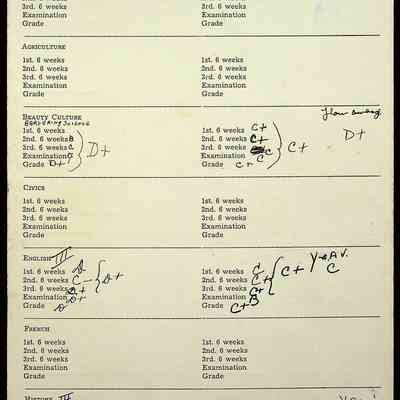 3rd. 6 weeks 3rd. 6 weeks
Examination Examination
Grade Grade
AGRICULTURE
1st. 6 weeks 1st. 6 weeks
2nd. 6 weeks 2nd. 6 weeks
3rd. 6 weeks 3rd. 6 weeks
Examination Examination
Grade Grade
BEAUTY CULTURE
1st. 6 weeks 1st. 6 weeks C+ D+
2nd. 6 weeks B 2nd. 6 weeks C+
3rd. 6 weeks C D+ 3rd. 6 weeks C C+
Examination Examination C
Grade D+ Grade C+
CIVICS
1st. 6 weeks 1st. 6 weeks
2nd. 6 weeks 2nd. 6 weeks
3rd. 6 weeks 3rd. 6 weeks
Examination Examination
Grade Grade
ENGLISH III Yr Av.
1st. 6 weeks D 1st. 6 weeks C C+ C
2nd. 6 weeks C- D+ 2nd. 6 weeks C+
3rd. 6 weeks D+ 3rd. 6 weeks C+
Examination D+ Examination B
Grade D Grade C+
FRENCH
1st. 6 weeks 1st. 6 weeks
2nd. 6 weeks 2nd. 6 weeks
3rd. 6 weeks 3rd. 6 weeks
Examination Examination
Grade Grade
HISTORY